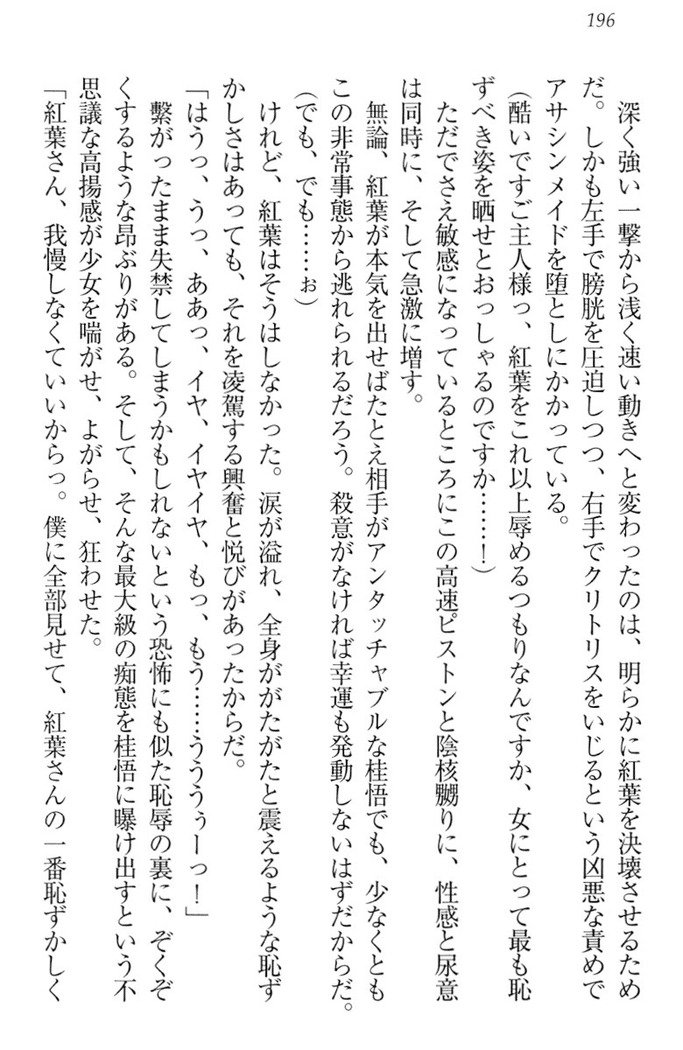 196
深く強い一撃から浅く速い動きへと変わったのは、明らかに紅葉を決壊させるため
だ。しかも左手で膀胱を圧迫しつつ、右手でクリトリスをいじるという凶悪な責めで
アサシンメイドを堕としにかかっている。
(酷いですご主人様っ、紅葉をこれ以上辱めるつもりなんですか、女にとって最も恥
ずべき姿を晒せとおっしゃるのですか……！)
ただでさえ敏感になっているところにこの高速ピストンと陰核嬲りに、性感と尿意
は同時に、そして急激に増す。
無論、紅葉が本気を出せばたとえ相手がアンタッチャブルな桂悟でも、少なくとも
この非常事態から逃れられるだろう。殺意がなければ幸運も発動しないはずだからだ。
(でも、でも……ぉ)
けれど、紅葉はそうはしなかった。涙が溢れ、全身ががたがたと震えるような恥ず
かしさはあっても、それを凌駕する興奮と悦びがあったからだ。
「はうっ、うっ、ああっ、イヤ、イヤイヤ、もっ、もう……うううぅーっ！」
繋がったまま失禁してしまうかもしれないという恐怖にも似た恥辱の裏に、ぞくぞ
くするような昂ぶりがある。そして、そんな最大級の痴態を桂悟に曝け出すという不
思議な高揚感が少女を喘がせ、よがらせ、狂わせた。
「紅葉さん、我慢しなくていいからっ。僕に全部見せて、紅葉さんの一番恥ずかしく